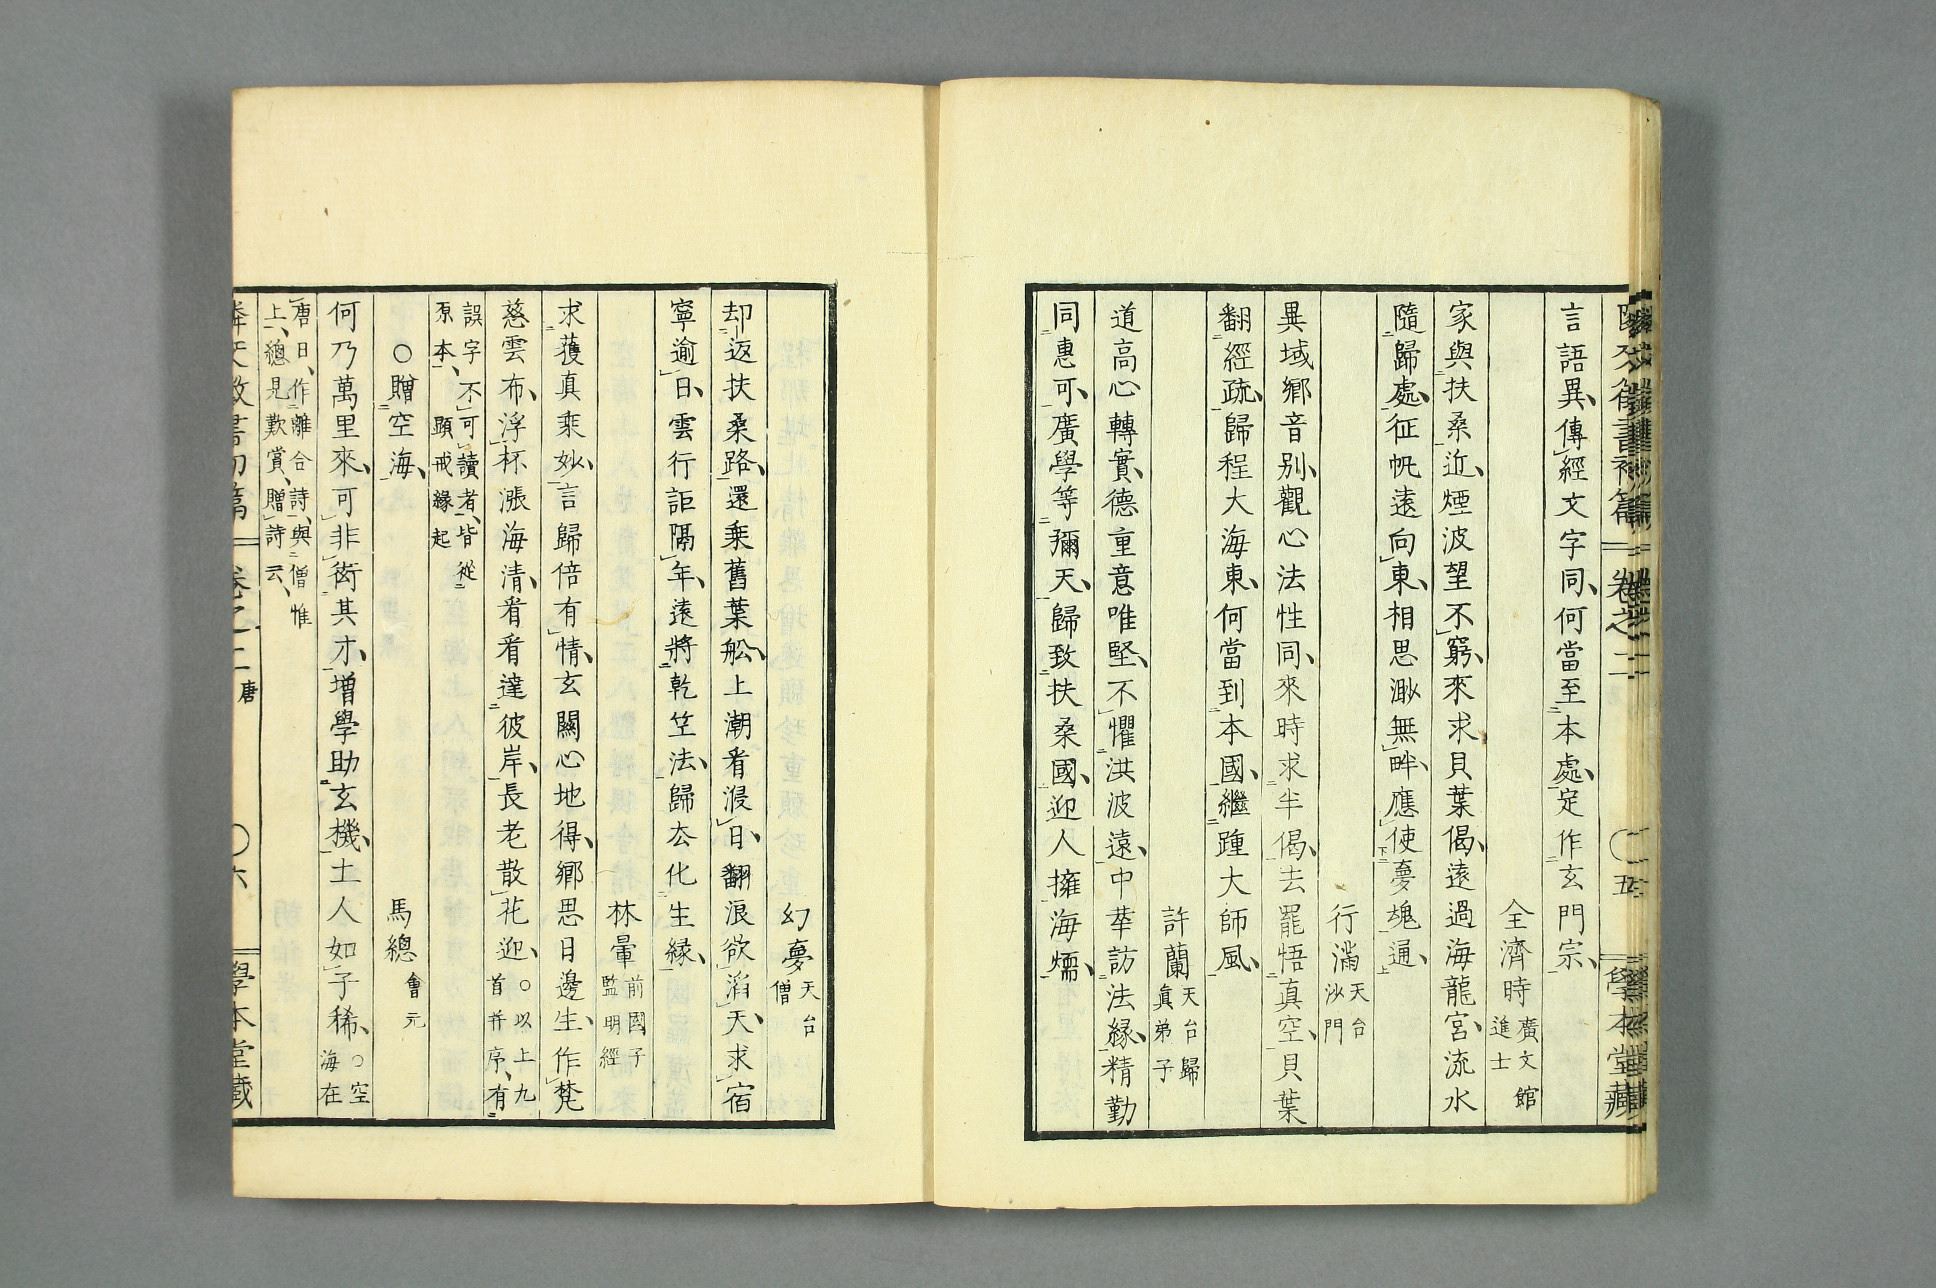 言語異傳經文字同何當至本處定作玄門宗
全濟時廣文館進士
家與扶桑近煙波望不窮來求貝葉偈遠過海龍宮流水
隨歸處征帆遠向東相思渺無畔應使夢魂通
行滿天台沙門
異域鄉音別觀心法性同來時求半偈去罷悟真空貝葉
翻經疏歸程大海東何當到本國繼踵大師風
許蘭天台歸眞弟子
道高心轉實德重意唯堅不懼洪波遠中華訪法緣精勤
同惠可廣學等彌天歸致扶桑國迎人擁海煙
幻夢天台僧
却返扶桑路還乘舊葉舩上潮看浸日翻浪欲滔天求宿
寧逾日雲行詎隔年遠將乾竺法歸去化生緣
林暈前國子監明經
求獲真乘妙言歸倍有情玄關心地得鄉思日邊生作梵
慈雲布浮杯漲海清看看達彼岸長老散花迎○以上十九首并序有
誤字不可讀者皆從原本顕戒緣起
○贈空海
馬總會元
何乃萬里來可非衒其才增學助玄機土人如子稀○空海在
唐日作離合詩與僧惟上總見歎賞贈詩云
卷之二 唐 ○六 學本堂藏